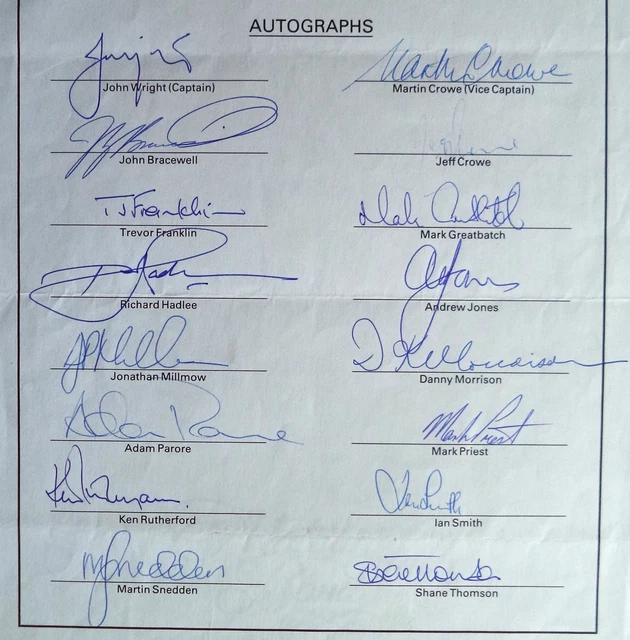 AUTOGRAPHS
John Wright (Captain)
Martin Crowe
Martin Crowe (Vice Captain)
John Bracewell
Jeff Crowe
TJ Franklin
Trevor Franklin
Mark Greatbatch
Richard Hadlee
Andrew Jones
Jonathan Millmow
D K Morrison
Danny Morrison
Adam Parore
Adam Parore
Mark Priest
Mark Priest
Ken Rutherford
Ian Smith
Ian Smith
M Snedden
Martin Snedden
Shane Thomson